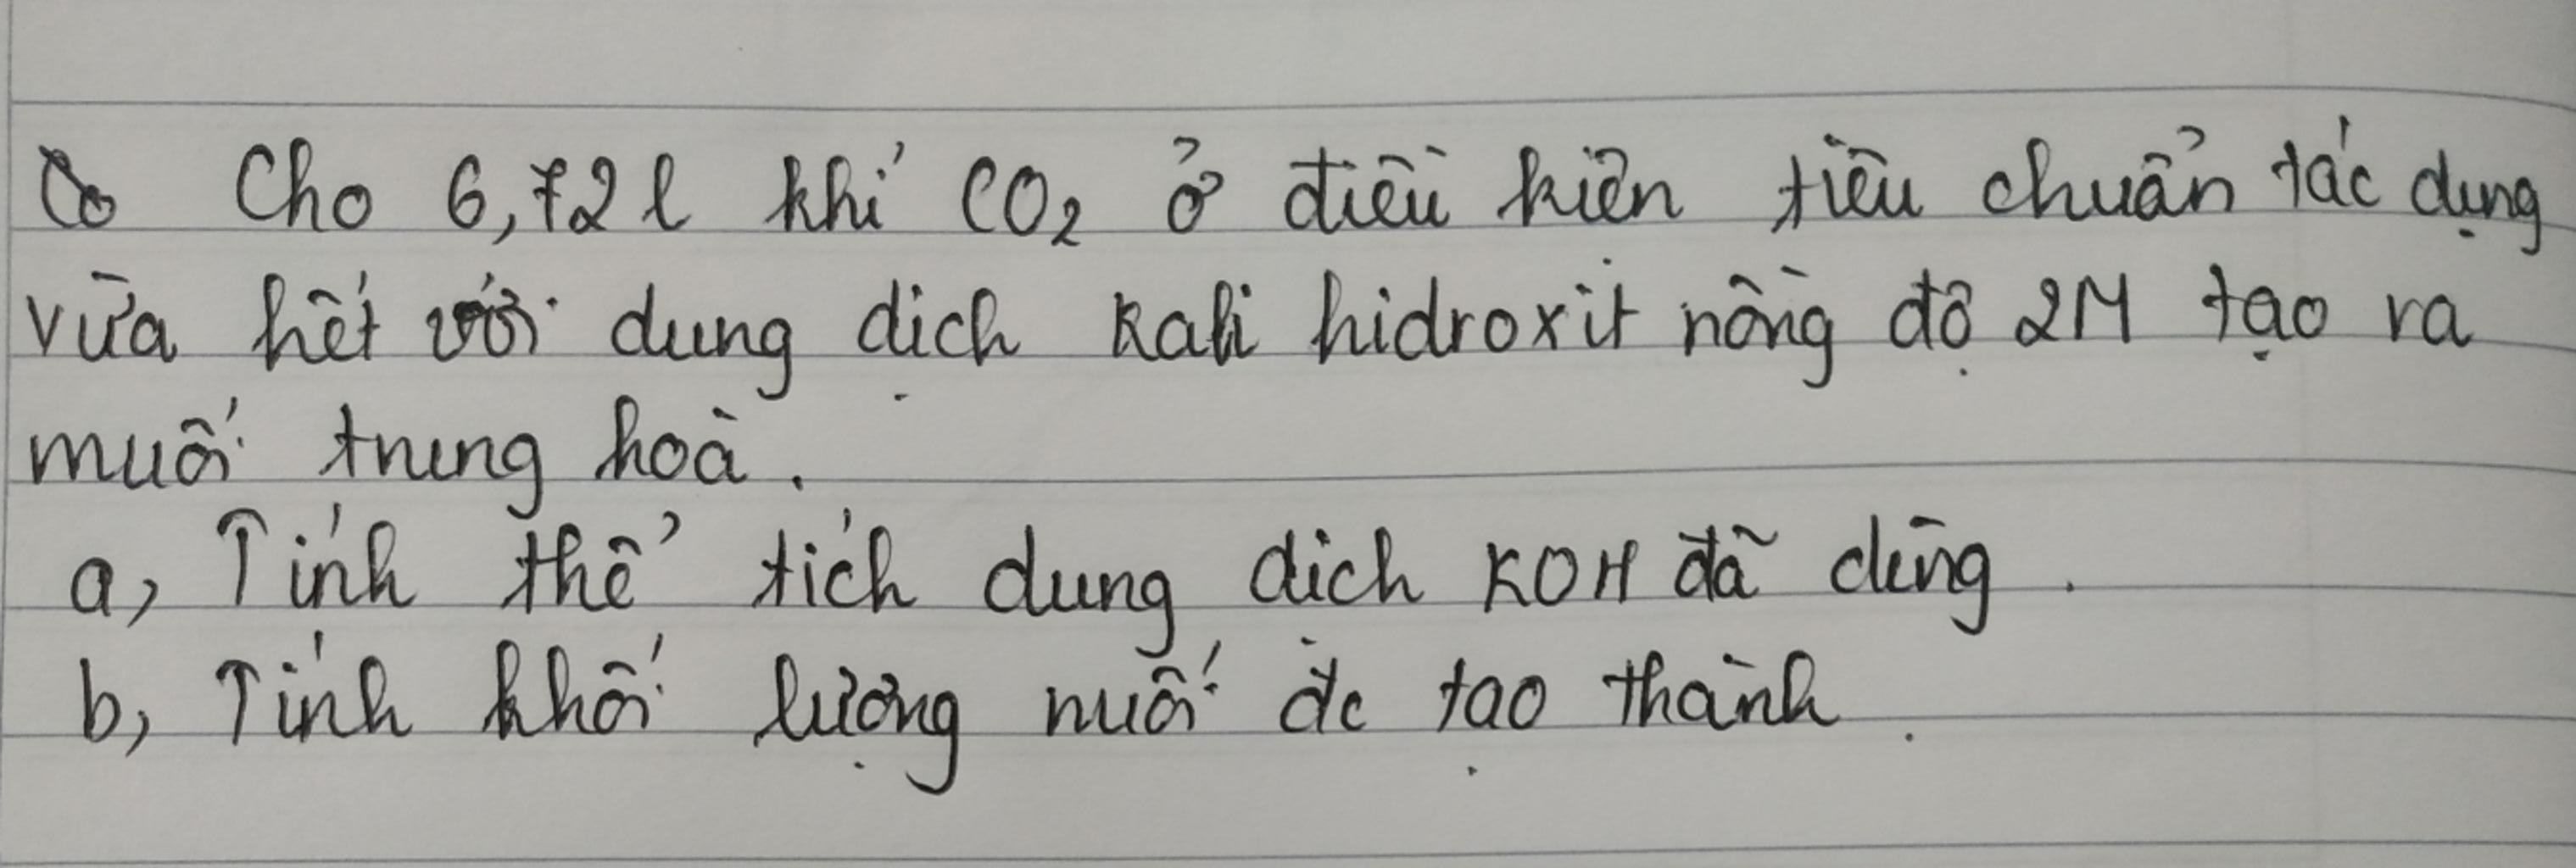 Cho 6,72l khí CO₂ ở điều kiện tiêu chuẩn tác dụng
vừa hết với dung dịch Kali hidroxit nồng độ 2M tạo ra
muối trung hoà.
a, Tính thể tích dung dịch KOH đã dùng.
b, Tính khối lượng muối đc tạo thành.